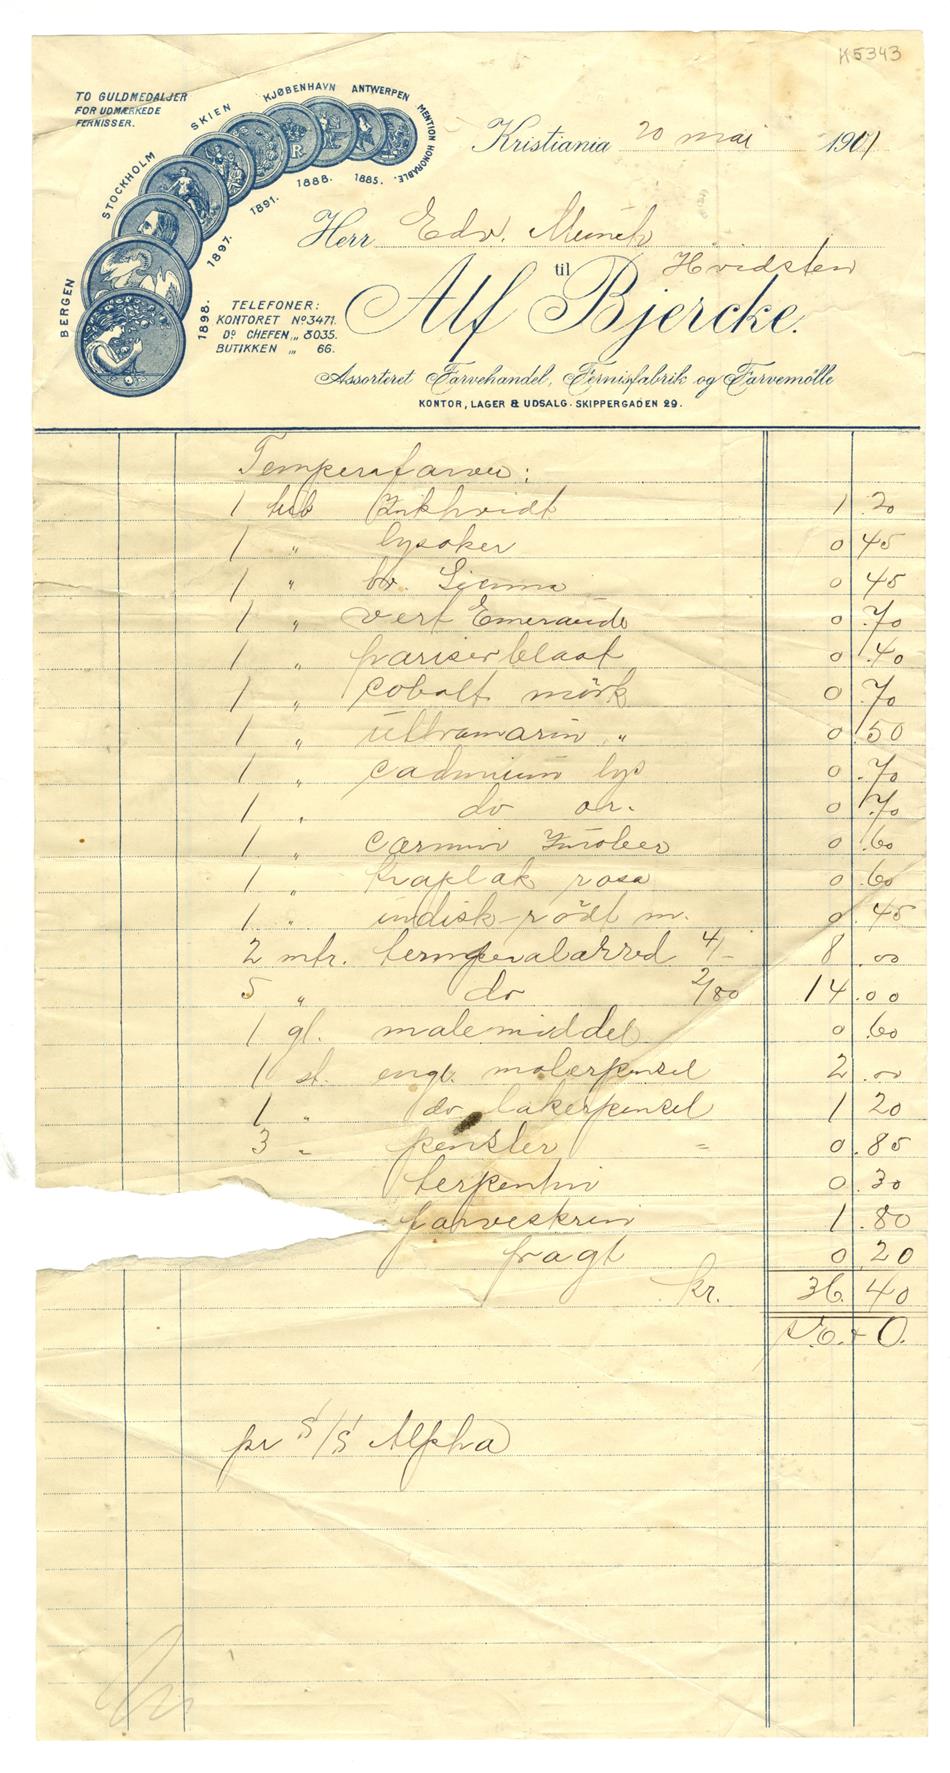 K5343
TO GULDMEDALJER
FOR UDMÆRKEDE
FERNISSER.
BERGEN STOCKHOLM SKIEN KJØBENHAVN ANTWERPEN MENTION HONORABLE.
1898. 1897. 1891. 1888. 1885.
Kristiania 20 mai 1901
Herr Edv. Munch
Hvidsten
til
Alf Bjercke.
TELEFONER:
KONTORET No 3471.
Do CHEFEN „ 8035.
BUTIKKEN „ 66.
Assorteret Farvehandel, Fernisfabrik og Farvemølle
KONTOR, LAGER & UDSALG. SKIPPERGADEN 29.
Temperafarver:
1 tub Zinkhvidt 1.20
1 " lysoker 0.45
1 " br. Sienna 0.45
1 " vert Emeraude 0.70
1 " pariserblaat 0.40
1 " cobolt mörk 0.70
1 " ultramarin " 0.50
1 " cadmium lys 0.70
1 " do or. 0.70
1 " carmin Zinober 0.60
1 " kraplak rosa 0.60
1 " indisk-rödt m. 0.45
2 mtr. temperalærred 4/- 8.00
5 " do 2/80 14.00
1 gl. malemiddel 0.60
1 st. engl. malerpensel 2.00
1 " do lakerpensel 1 20
3 " pensler = 0.85
terpentin 0.30
farveskrin 1.80
fragt 0 20
kr. 36.40
pr S/S Alpha